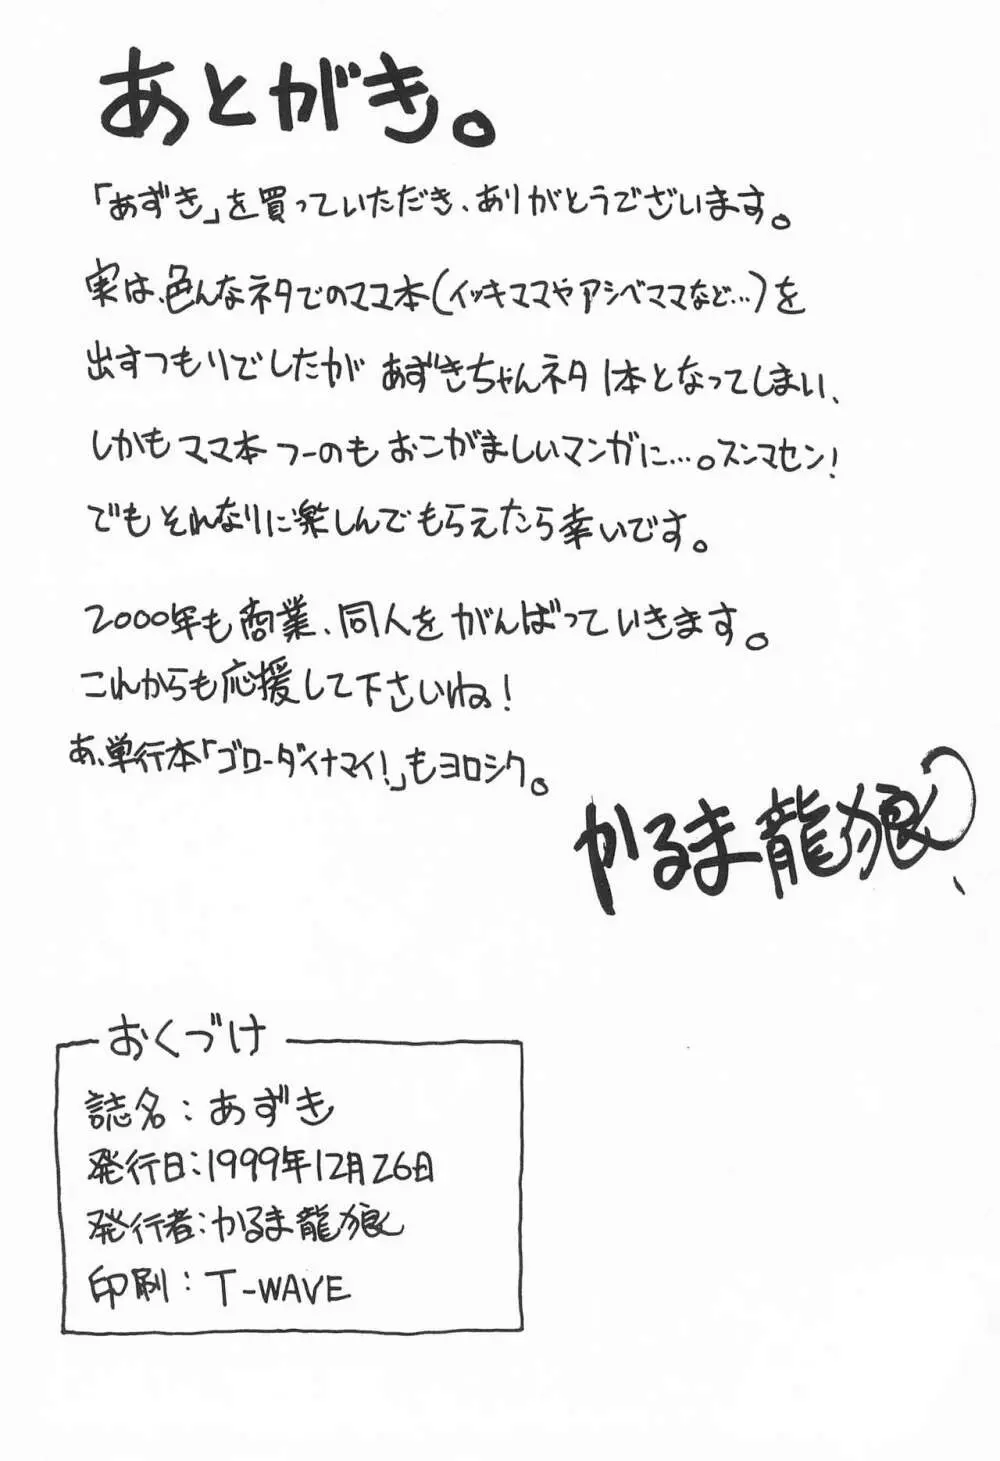 あとがき。
「あずき」を買っていただき、ありがとうでございます。
実は、色んなネタでのママ本(イッキママやアシベママなど…)を
出すつもりでしたが あずきちゃんネタ1本となってしまい、
しかもママ本つーのもおこがましいマンガに…。スンマセン!
でもそれなりに楽しんでもらえたら幸いです。
2000年も商業、同人をがんばっていきます。
これからも応援して下さいね!
あ、単行本「ゴローダイナマイ!」もヨロシク。
かるま龍狼
おくづけ
誌名:あずき
発行日:1999年12月26日
発行者:かるま龍狼
印刷:T-WAVE